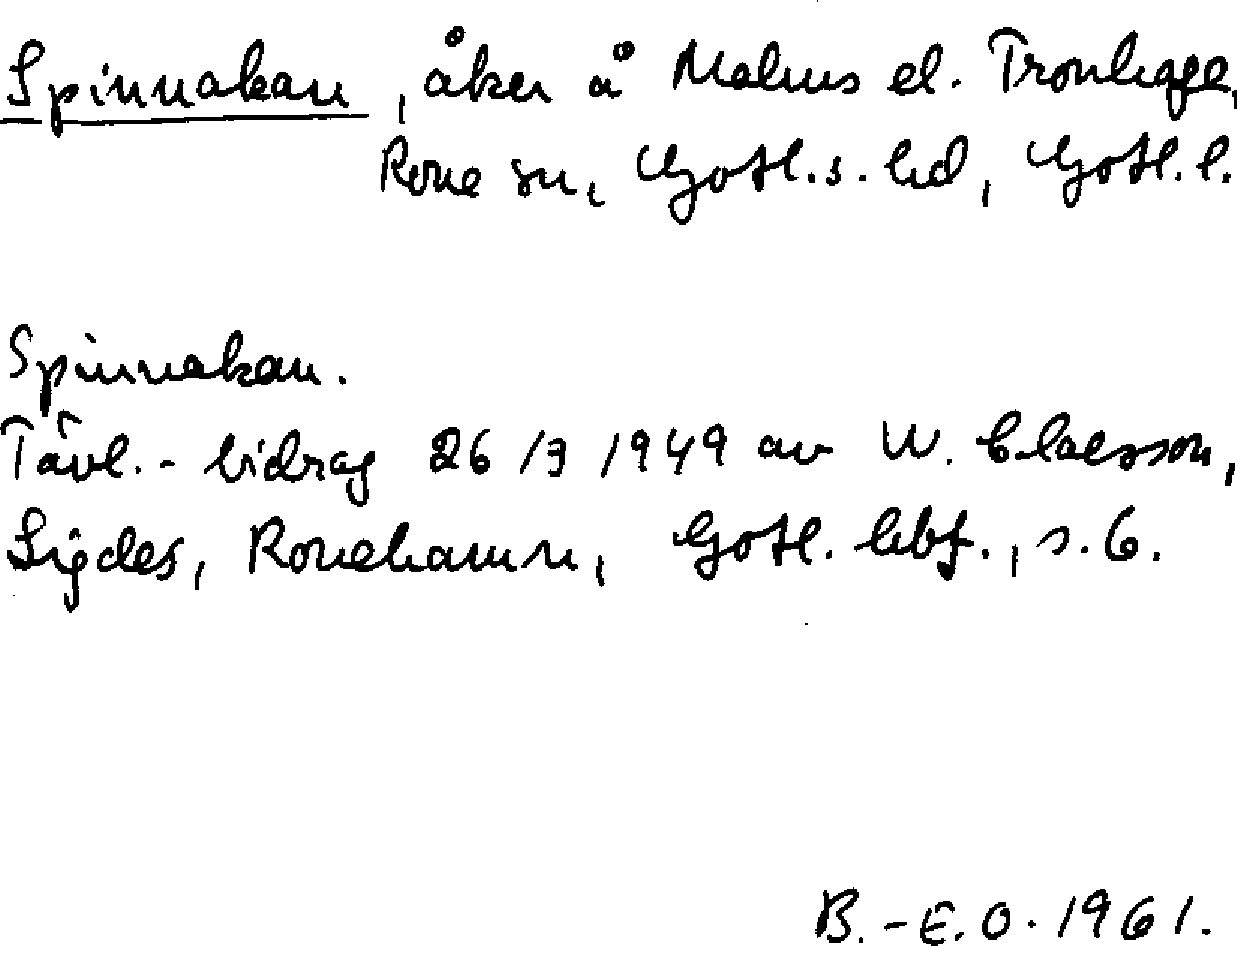 Spinnakan, åker å Malms el. Tronhage,
Rone sn, Gotl. s. hd, Gotl. l.
Spinnakan.
Tävl.-bidrag 26/3 1949 av W. Claesson,
Sigdes, Ronehamn, Gotl. hbf., s. 6.
B.-E. O. 1961.